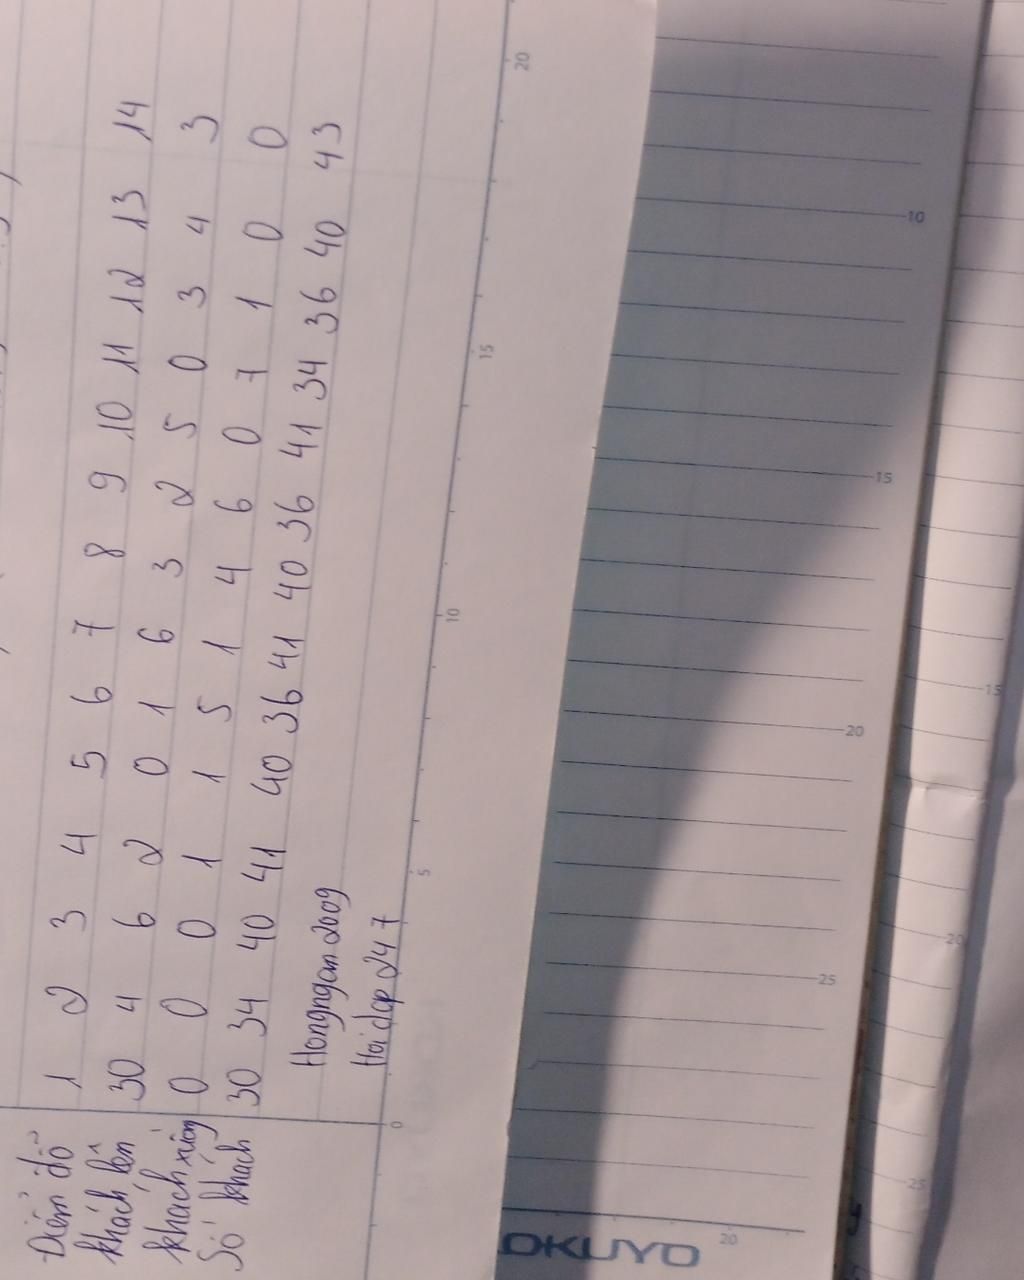 Điểm đỗ 1 2 3 4 5 6 7 8 9 10 11 12 13 14
khách lên 30 4 6 2 0 1 6 3 2 5 0 3 4 3
khách xuống 0 0 0 1 1 5 1 4 6 0 7 1 0 0
Số khách 30 34 40 41 40 36 41 40 36 41 34 36 40 43
Hongngan2009
Hoidap247
0 5 10 15 20
OKUYO
20
25 20 15 10
25 20 15